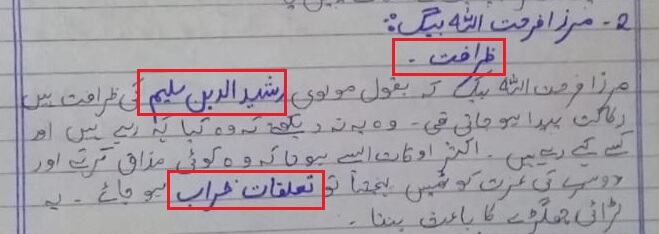 2- مرزا فرحت اللہ بیگ:
ظرافت -
مرزا فرحت اللہ بیگ کہ بقول مولوی رشید الدین سلیم کی ظرافت میں
رکاکت پیدا ہو جاتی تھی - وہ یہ نہ دیکھتے کہ وہ کیا کہہ رہے ہیں اور
کسے کہہ رہے ہیں - اکثر اوقات ایسے ہوتا کہ وہ کوئی مذاق کرتے اور
دوسرے کی عزت کو ٹھیس پہنچتی تو تعلقات خراب ہو جاتے - یہ
لڑائی جھگڑے کا باعث بنتا -